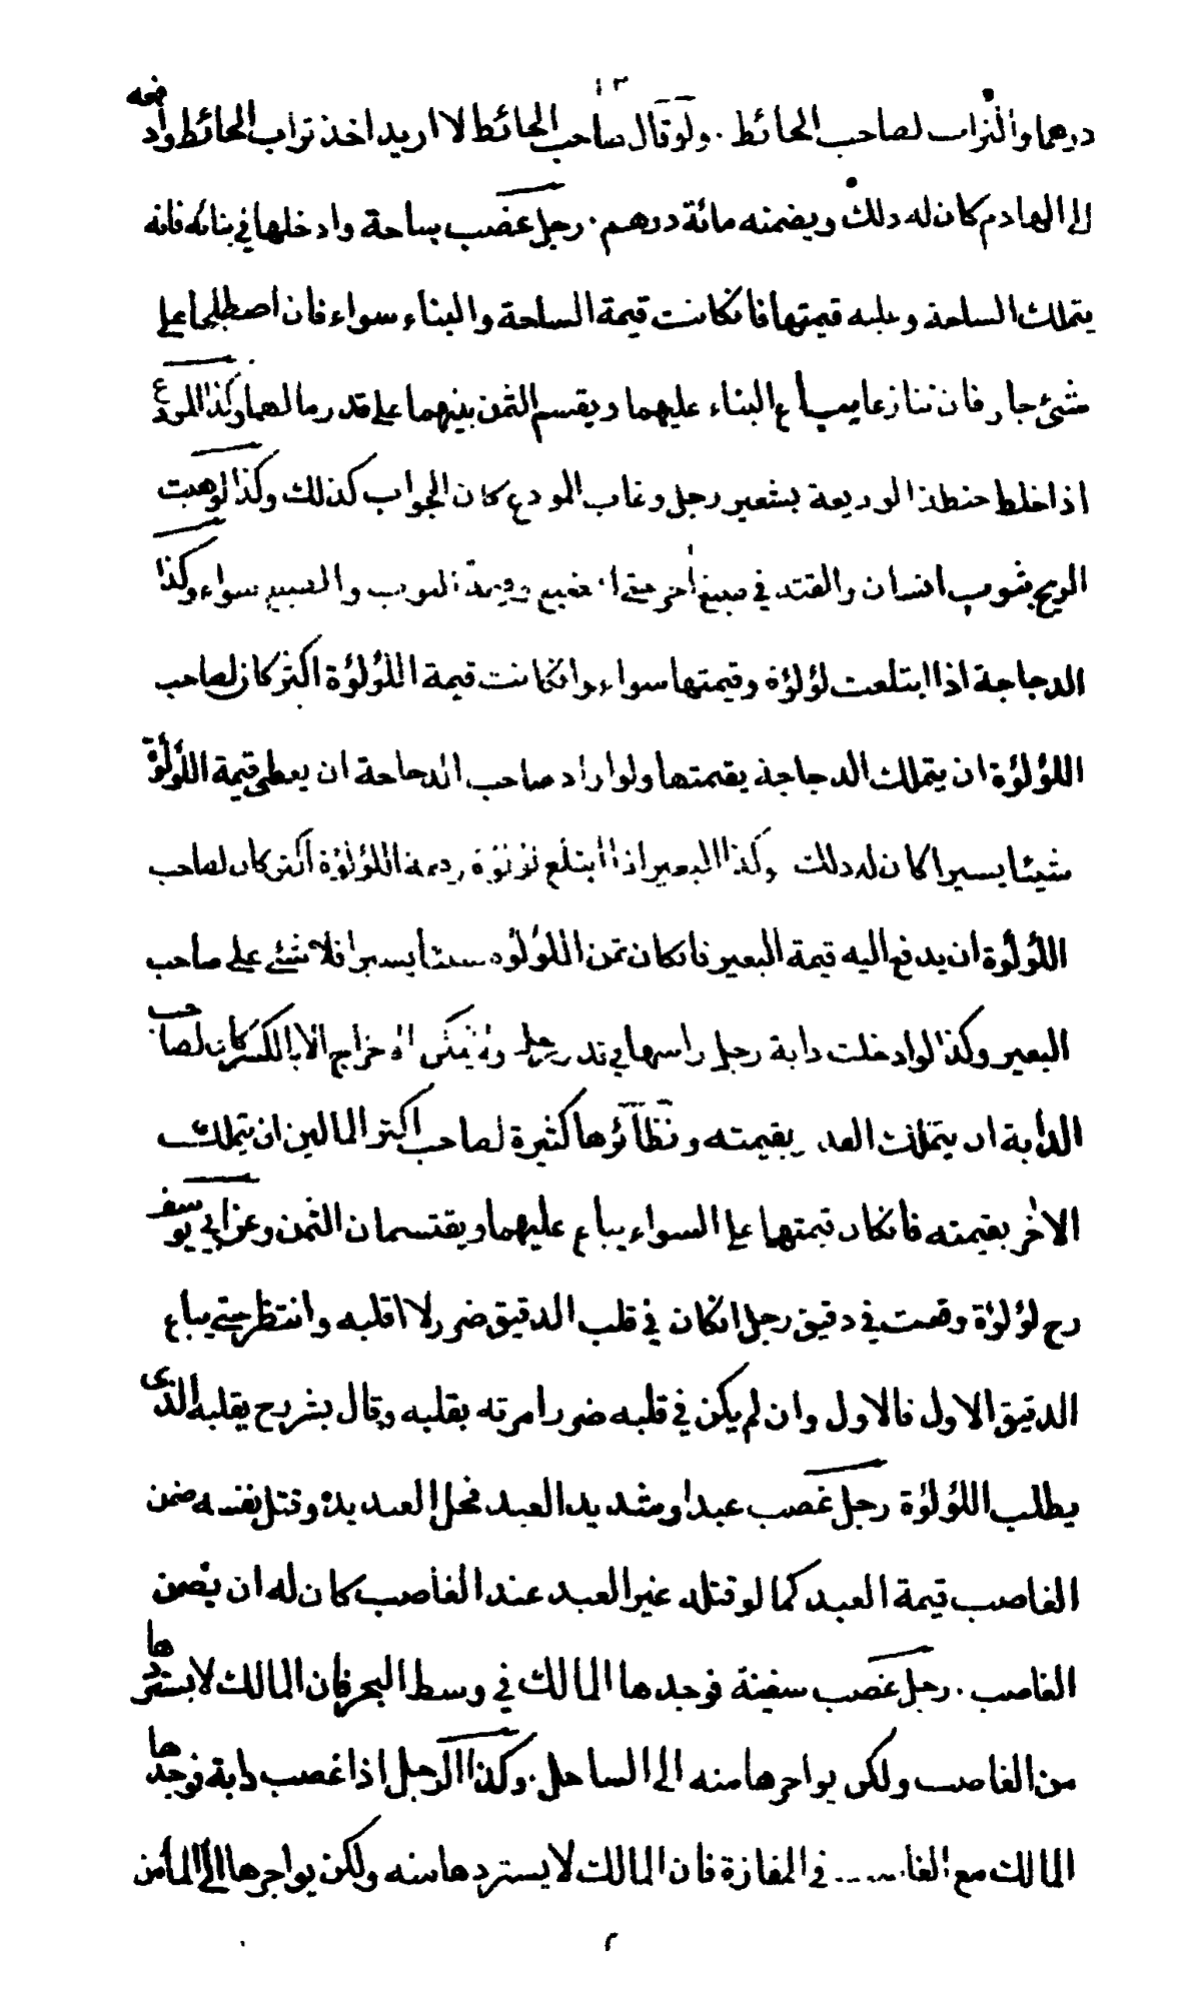 ١٣
درهما والتراب لصاحب الحائط . ولو قال صاحب الحائط لا اريد اخذ تراب الحائط وادفعه
الى الهادم كان له ذلك ويضمنه مائة درهم . رجل غصب ساحة وادخلها في بنائه فانه
يتملك الساحة وعليه قيمتها فانكانت قيمة الساحة والبناء سواء فان اصطلحا على
شئ جاز فان تنازعا يباع البناء عليهما ويقسم الثمن بينهما على قدر مالهما وكذا المودع
اذا خلط حنطة الوديعة بشعير رجل وغاب المودع كان الجواب كذلك وكذا لو هبت
الريح بثوب انسان والقته في صبغ اخر حتى انصبغ وقيمة الثوب والصبغ سواء وكذا
الدجاجة اذا ابتلعت لؤلؤة وقيمتها سواء وانكانت قيمة اللؤلؤة اكثر كان لصاحب
اللؤلؤة ان يتملك الدجاجة بقيمتها ولو اراد صاحب الدجاجة ان يعطى قيمة اللؤلؤة
شيئا يسيرا كان له ذلك وكذا البعير اذا ابتلع لؤلؤة وقيمة اللؤلؤة اكثر كان لصاحب
اللؤلؤة ان يدفع اليه قيمة البعير فانكان ثمن اللؤلؤة شيئا يسيرا فلا شئ على صاحب
البعير وكذا لو ادخلت دابة رجل راسها في قدر رجل ولا يمكن الاخراج الا بالكسر كان لصاحب
الدابة ان يتملك القدر بقيمته ونظائرها كثيرة لصاحب اكثر المالين ان يتملك
الاخر بقيمته فانكان قيمتها على السواء يباع عليهما ويقتسمان الثمن وعن ابي يوسف
رح لؤلؤة وقعت في دقيق رجل انكان في قلب الدقيق ضرر لا اقلبه وانتظر حتى يباع
الدقيق الاول فالاول وان لم يكن في قلبه ضرر امرته بقلبه وقال بشر رح يقلبه الذى
يطلب اللؤلؤة رجل غصب عبدا وشد يد العبد فحل العبد يده وقتل نفسه ضمن
الغاصب قيمة العبد كما لو قتله غير العبد عند الغاصب كان له ان يضمن
الغاصب . رجل غصب سفينة فوجدها المالك في وسط البحر فان المالك لا يستردها
من الغاصب ولكن يواجرها منه الى الساحل . وكذا الرجل اذا غصب دابة فوجدها
المالك مع الغاصب في المفازة فان المالك لا يستردها منه ولكن يواجرها الى المأمن
٢